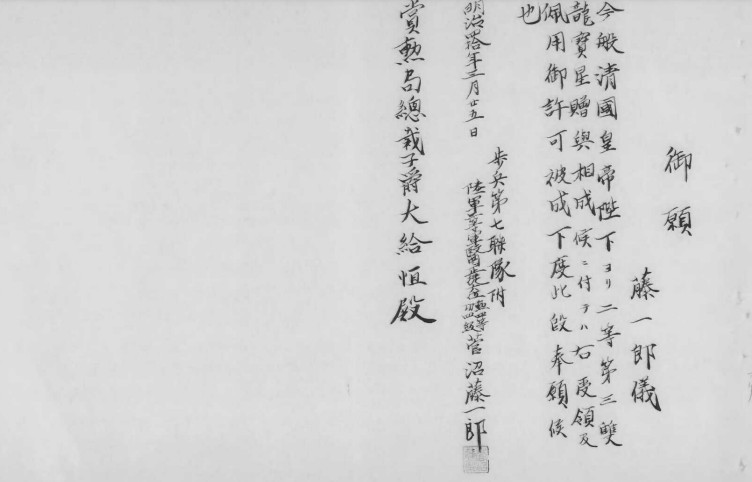 御願
藤一郎儀
今般清國皇帝陛下ヨリ二等第三雙
龍寶星贈與相成候ニ付テハ右受領及
佩用御許可被成下度此段奉願候
也
明治四拾年三月廿五日
歩兵第七聯隊附
陸軍 菅沼藤一郎
賞勲局總裁子爵大給恒殿